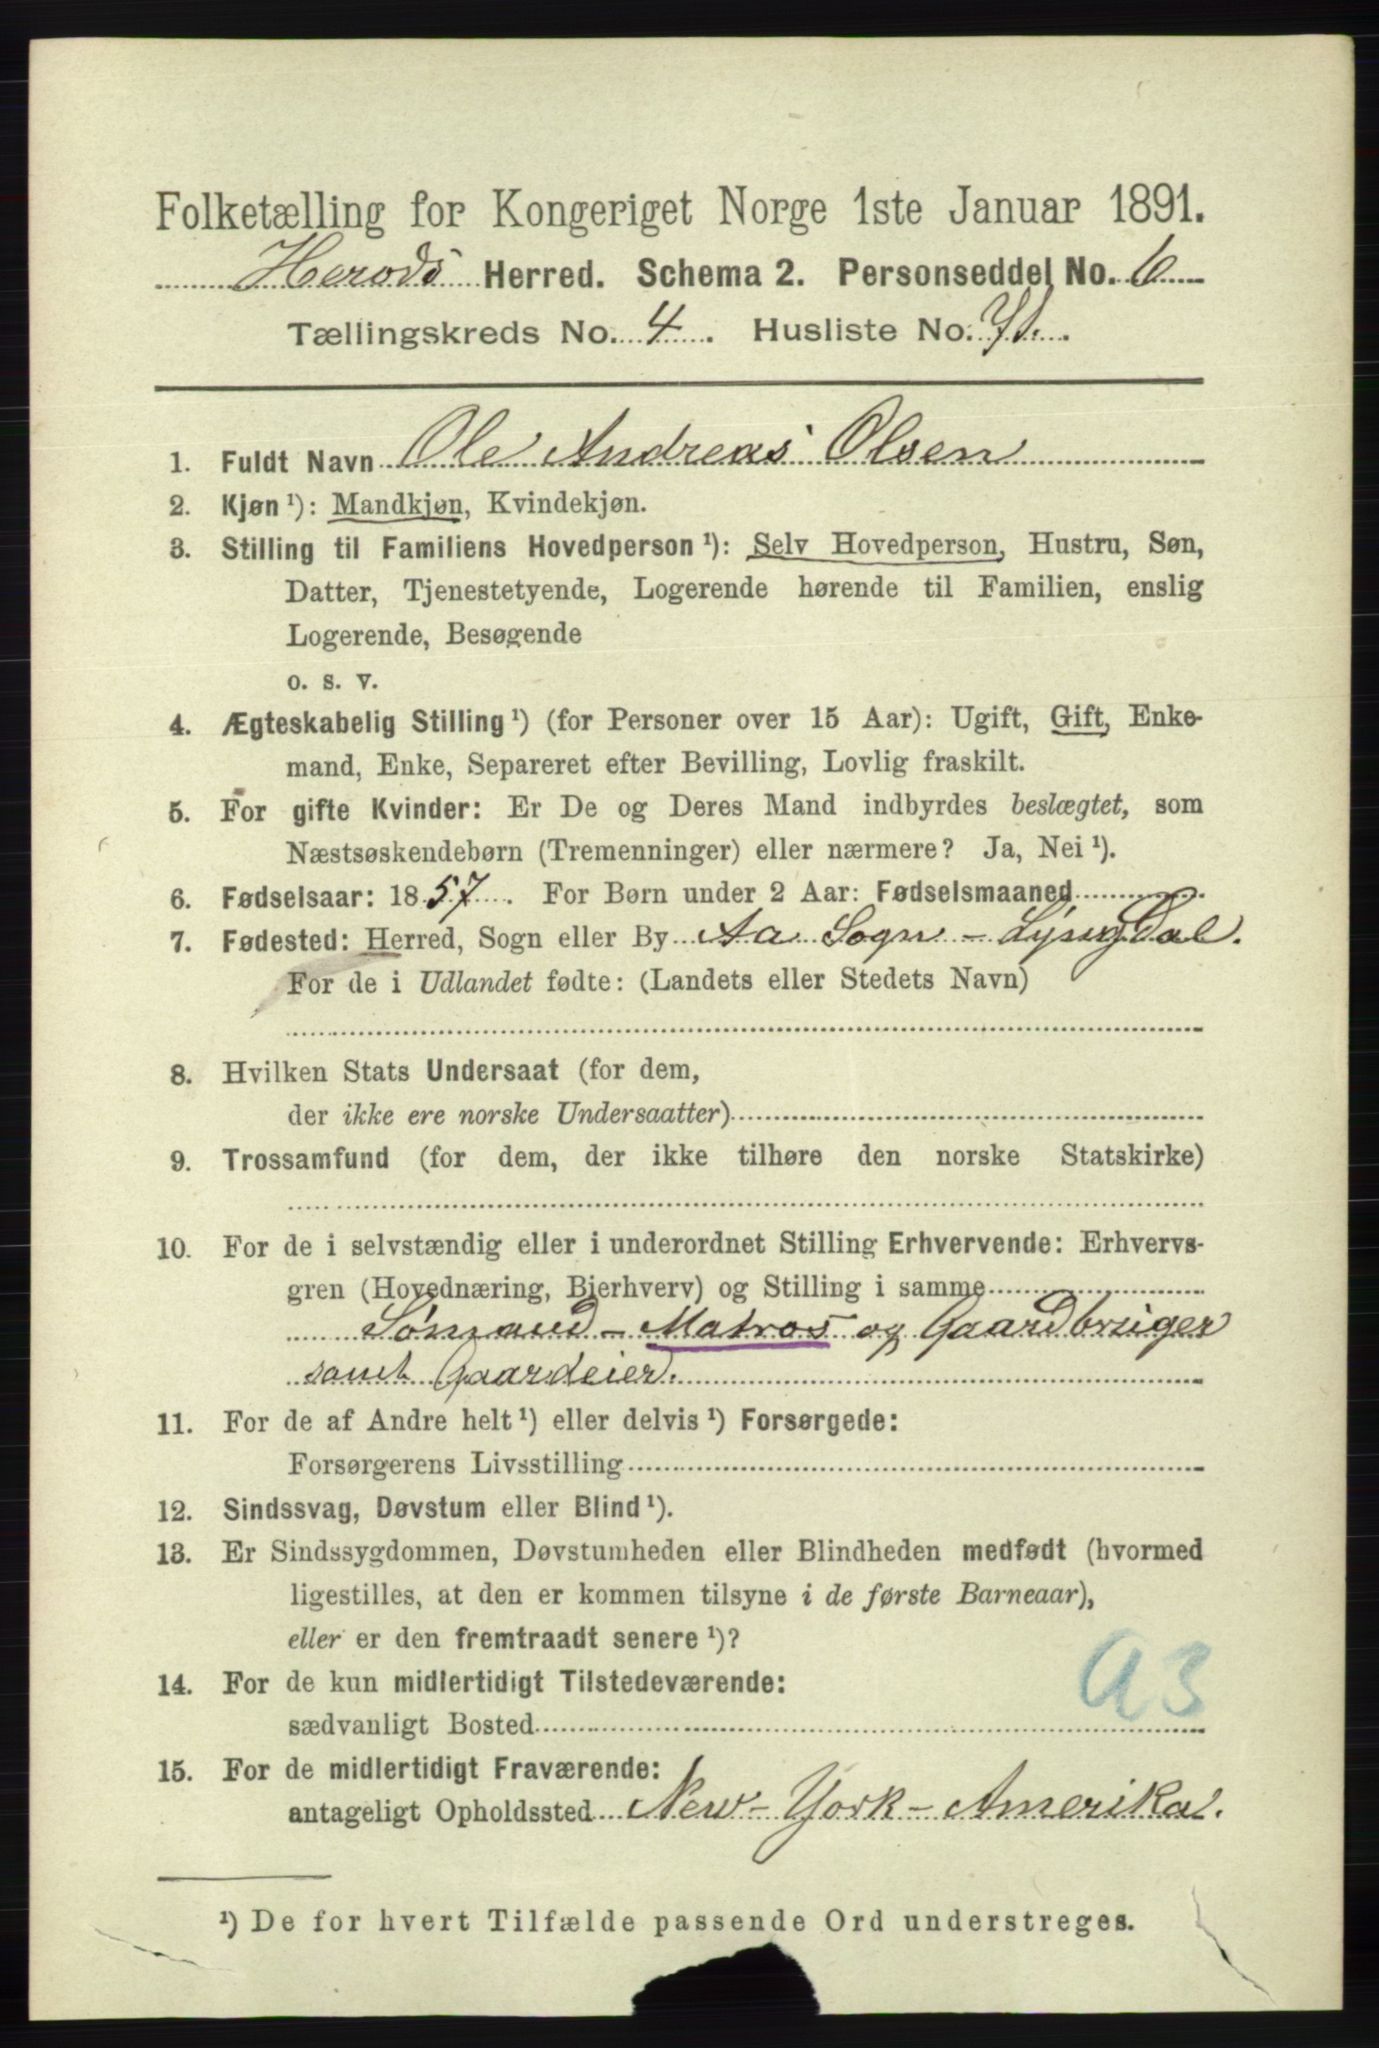 Folketælling for Kongeriget Norge 1ste Januar 1891.
Herods Herred. Schema 2. Personseddel No. 6
Tællingskreds No. 4. Husliste No.
1. Fuldt Navn Ole Andreas Olsen
2. Kjøn ¹): Mandkjøn, Kvindekjøn.
3. Stilling til Familiens Hovedperson ¹): Selv Hovedperson, Hustru, Søn,
Datter, Tjenestetyende, Logerende hørende til Familien, enslig
Logerende, Besøgende
o. s. v.
4. Ægteskabelig Stilling ¹) (for Personer over 15 Aar): Ugift, Gift, Enke-
mand, Enke, Separeret efter Bevilling, Lovlig fraskilt.
5. For gifte Kvinder: Er De og Deres Mand indbyrdes beslægtet, som
Næstsøskendebørn (Tremenninger) eller nærmere? Ja, Nei ¹).
6. Fødselsaar: 1857. For Børn under 2 Aar: Fødselsmaaned
7. Fødested: Herred, Sogn eller By Aa Sogn - Lyngdal.
For de i Udlandet fødte: (Landets eller Stedets Navn)
8. Hvilken Stats Undersaat (for dem,
der ikke ere norske Undersaatter)
9. Trossamfund (for dem, der ikke tilhøre den norske Statskirke)
10. For de i selvstændig eller i underordnet Stilling Erhvervende: Erhvervs-
gren (Hovednæring, Bierhverv) og Stilling i samme
Sømand - Matros og Gaardbruger
samt Gaardeier.
11. For de af Andre helt ¹) eller delvis ¹) Forsørgede:
Forsørgerens Livsstilling
12. Sindssvag, Døvstum eller Blind ¹).
13. Er Sindssygdommen, Døvstumheden eller Blindheden medfødt (hvormed
ligestilles, at den er kommen tilsyne i de første Barneaar),
eller er den fremtraadt senere ¹)?
14. For de kun midlertidigt Tilstedeværende:
sædvanligt Bosted
a3
15. For de midlertidigt Fraværende:
antageligt Opholdssted New-York-Amerika.
¹) De for hvert Tilfælde passende Ord understreges.